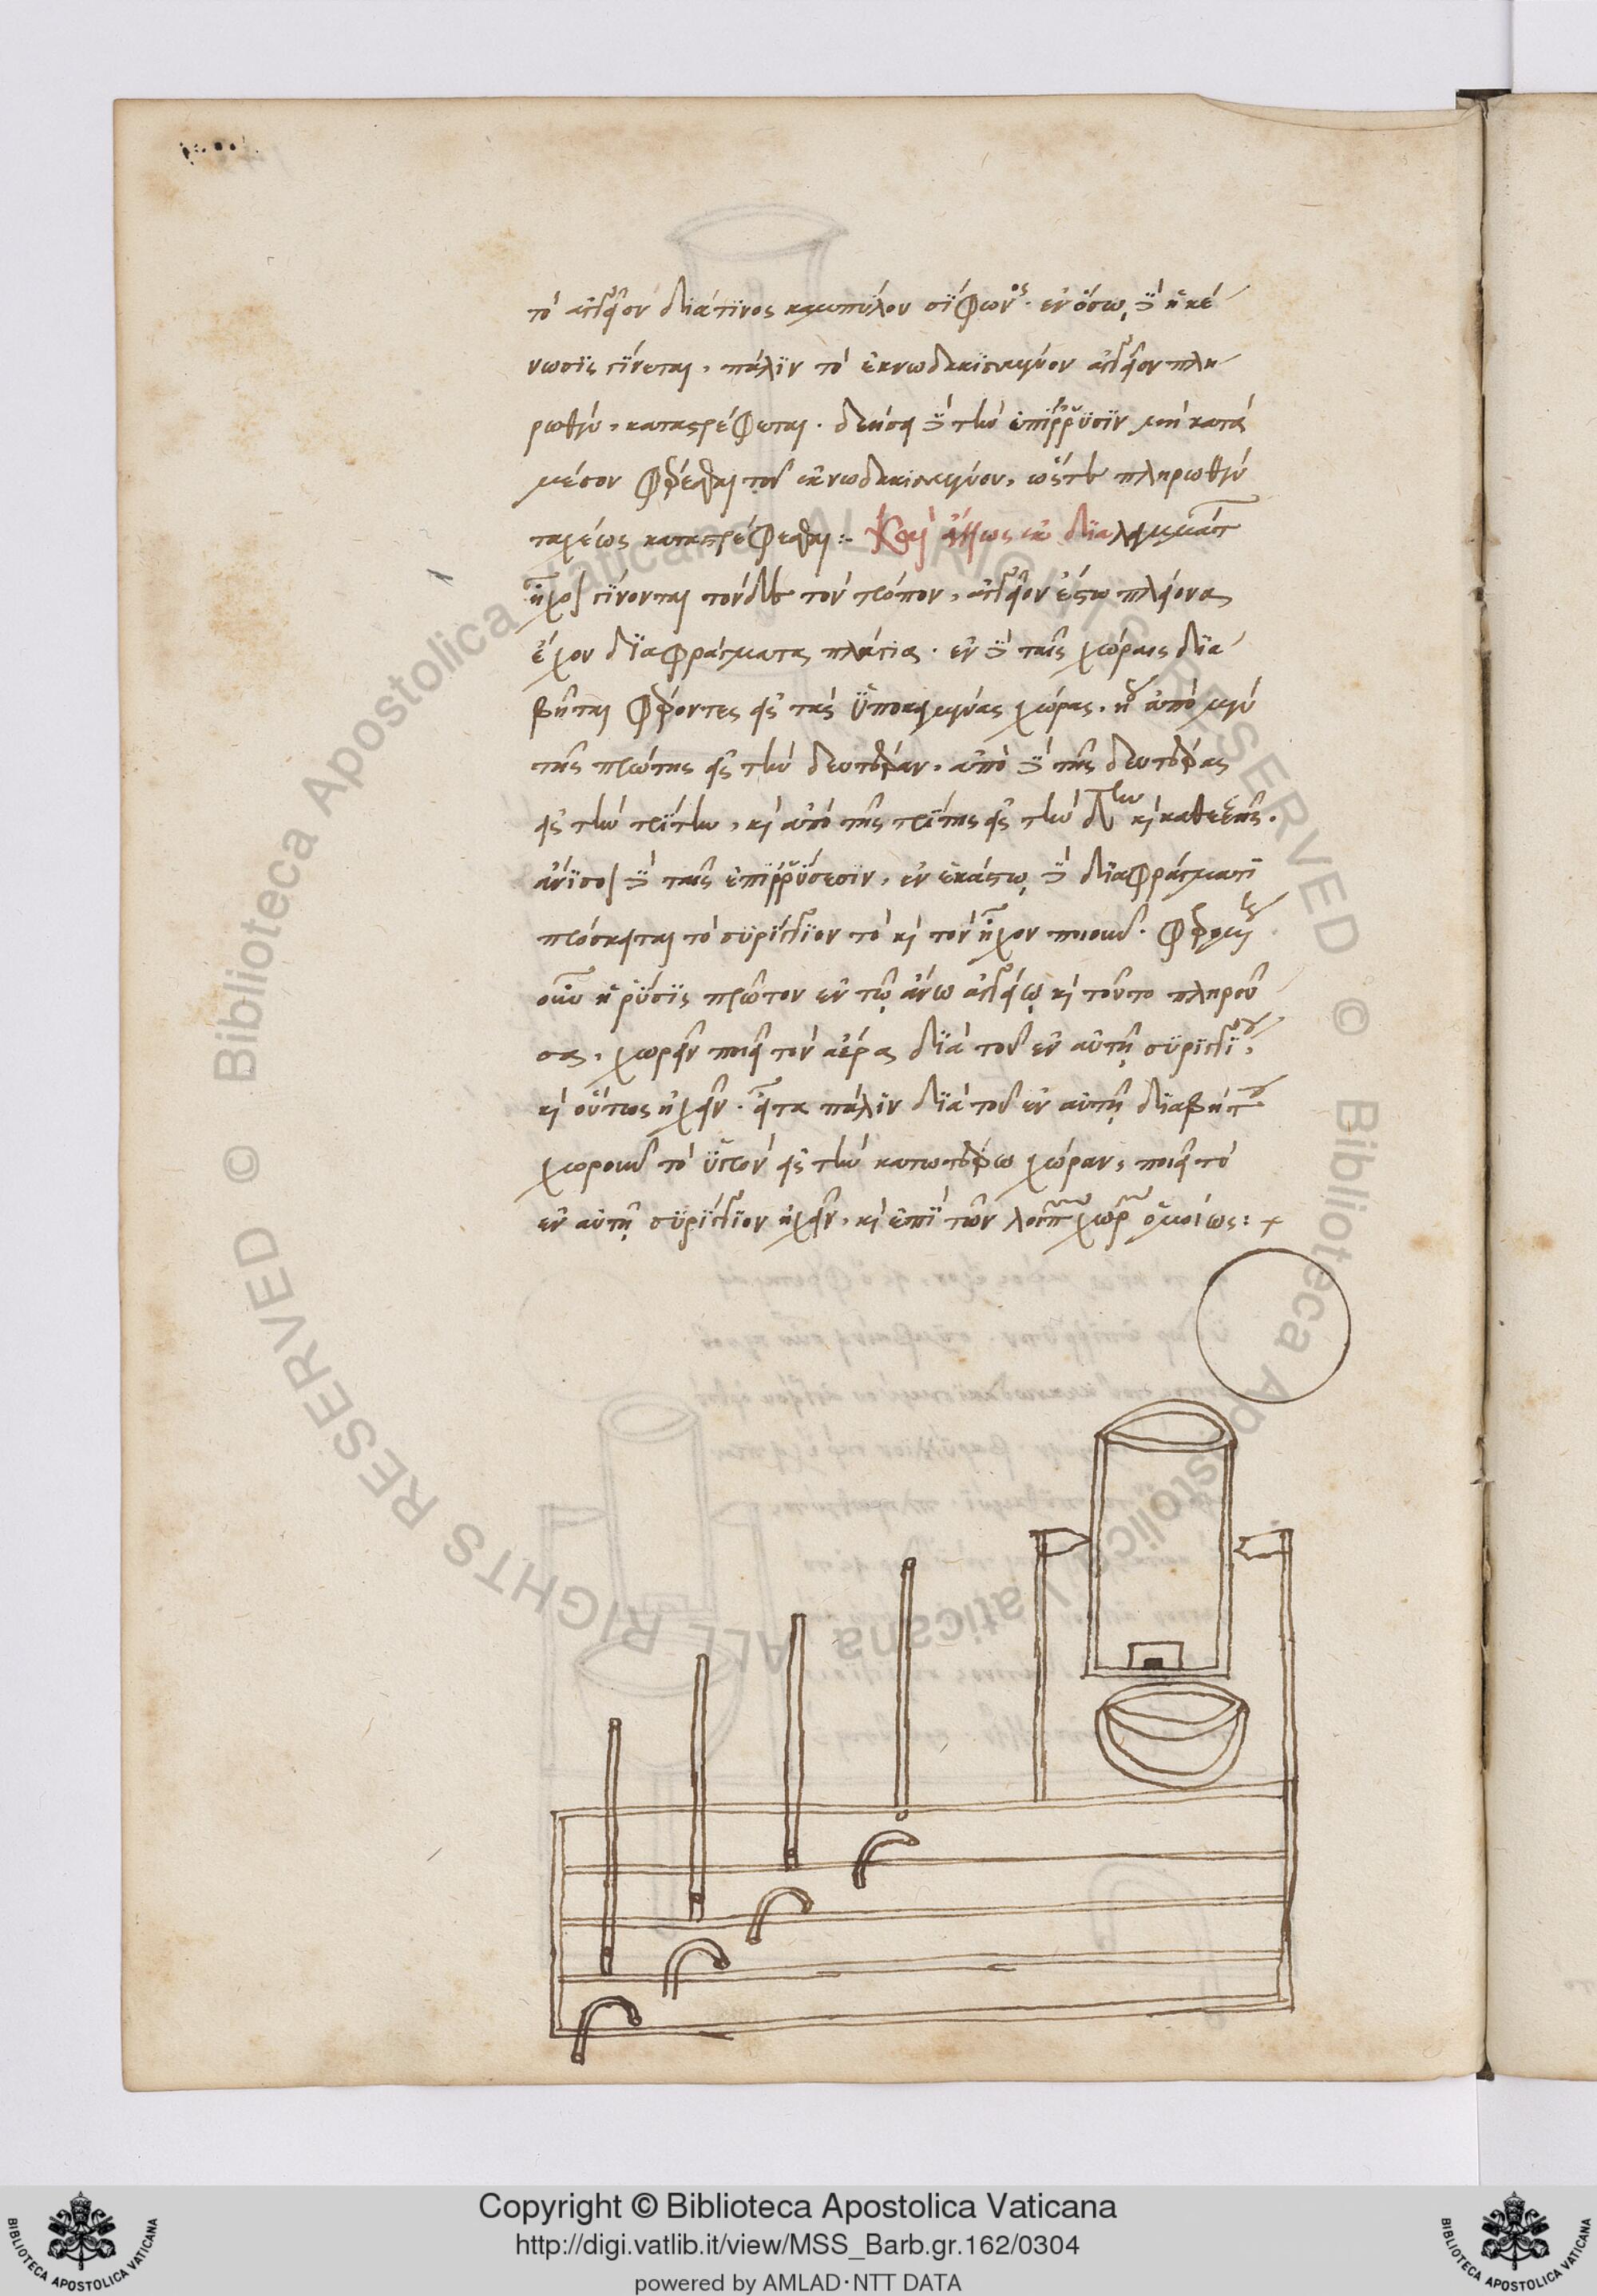 τὸ ἀγγεῖον διά τινος καμπύλου σίφωνος. ἐν ὅσῳ δὲ ἡ κέ
νωσις γίνεται, πάλιν τὸ ἐκνωδακισμένον ἀγγεῖον πλη
ρωθὲν, καταστρέφεται. δεήσει δὲ τὴν ἐπίρρυσιν μὴ κατὰ
μέσον φέρεσθαι τοῦ ἐκνωδακισμένου, ὥστε πληρωθὲν
ταχέως καταστρέφεσθαι:- Καὶ ἄλλως ἐκ διαλειμμάτων
ἦχοι γίνονται τόνδε τὸν τρόπον, ἀγγεῖον ἔστω πλείονα
ἔχον διαφράγματα πλάγια. ἐν δὲ ταῖς χώραις δια
βῆται φέροντες εἰς τὰς ὑποκειμένας χώρας. ἀπὸ μὲν
τῆς πρώτης εἰς τὴν δευτέραν, ἀπὸ δὲ τῆς δευτέρας
εἰς τὴν τρίτην, καὶ ἀπὸ τῆς τρίτης εἰς τὴν δην καὶ καθεξῆς.
ἄνισοι δὲ ταῖς ἐπιρρύσεσιν, ἐν ἑκάστῳ δὲ διαφράγματι
πρόσκειται τὸ συρίγγιον τὸ καὶ τὸν ἦχον ποιοῦν. φέρομένη
οὖν ἡ ῥύσις πρῶτον ἐν τῷ ἄνω ἀγγείῳ καὶ τοῦτο πληροῦ
σα, χωρεῖν ποιεῖ τὸν ἀέρα διὰ τοῦ ἐν αὐτῇ συριγγίου,
καὶ οὕτως ἠχεῖν. εἶτα πάλιν διὰ τοῦ ἐν αὐτῇ διαβήτου
χωροῦν τὸ ὑγρὸν εἰς τὴν κατωτέρω χώραν, ποιεῖ τὸ
ἐν αὐτῇ συρίγγιον ἠχεῖν, καὶ ἐπὶ τῶν λοιπῶν χωρῶν ὁμοίως: +
Copyright © Biblioteca Apostolica Vaticana
http://digi.vatlib.it/view/MSS_Barb.gr.162/0304
powered by AMLAD·NTT DATA
BIBLIOTECA APOSTOLICA VATICANA
BIBLIOTECA APOSTOLICA VATICANA
© Biblioteca Apostolica Vaticana ALL RIGHTS RESERVED
© Biblioteca Apostolica Vaticana ALL RIGHTS RESERVED